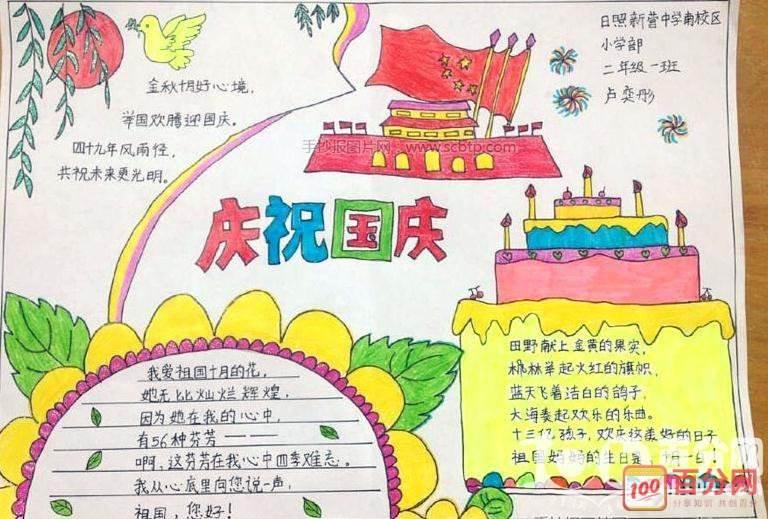 金秋十月好心境，
举国欢腾迎国庆。
四十九年风雨径，
共祝未来更光明。
日照新营中学南校区
小学部
二年级一班
卢奕彤
手抄报图片网 www.scbtp.com
庆祝国庆
我爱祖国十月的花，
她无比灿烂辉煌，
因为她在我的心中，
有56种芬芳————
啊，这芬芳在我心中四季难忘。
我从心底里向您说一声，
祖国，您好！
田野献上金黄的果实，
枫林举起火红的旗帜，
蓝天飞着洁白的鸽子，
大海奏起欢乐的乐曲。
十三亿孩子，欢庆这美好的日子
祖国妈妈的生日是，十一日！
100 百分网
分享知识 共创百分